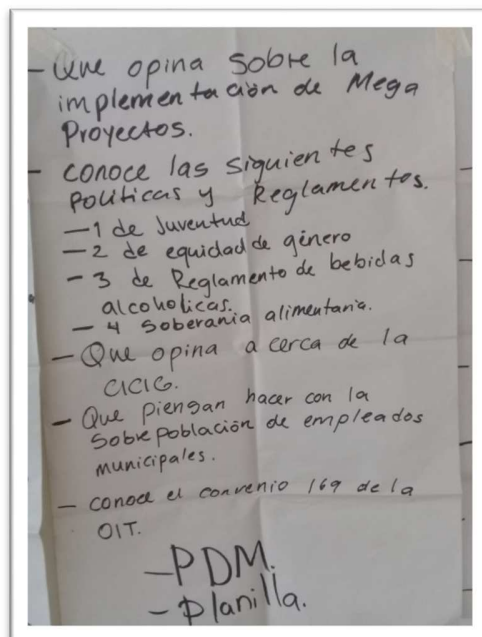 - Que opina sobre la
implementación de Mega
Proyectos.
- conoce las siguientes
Politicas y Reglamentos.
- 1 de Juventud
- 2 de equidad de género
- 3 de Reglamento de bebidas
alcoholicas.
- 4 soberania alimentaria.
- Que opina acerca de la
CICIG.
- Que piensan hacer con la
sobrepoblación de empleados
municipales.
- conoce el convenio 169 de la
OIT.
- PDM.
- Planilla.